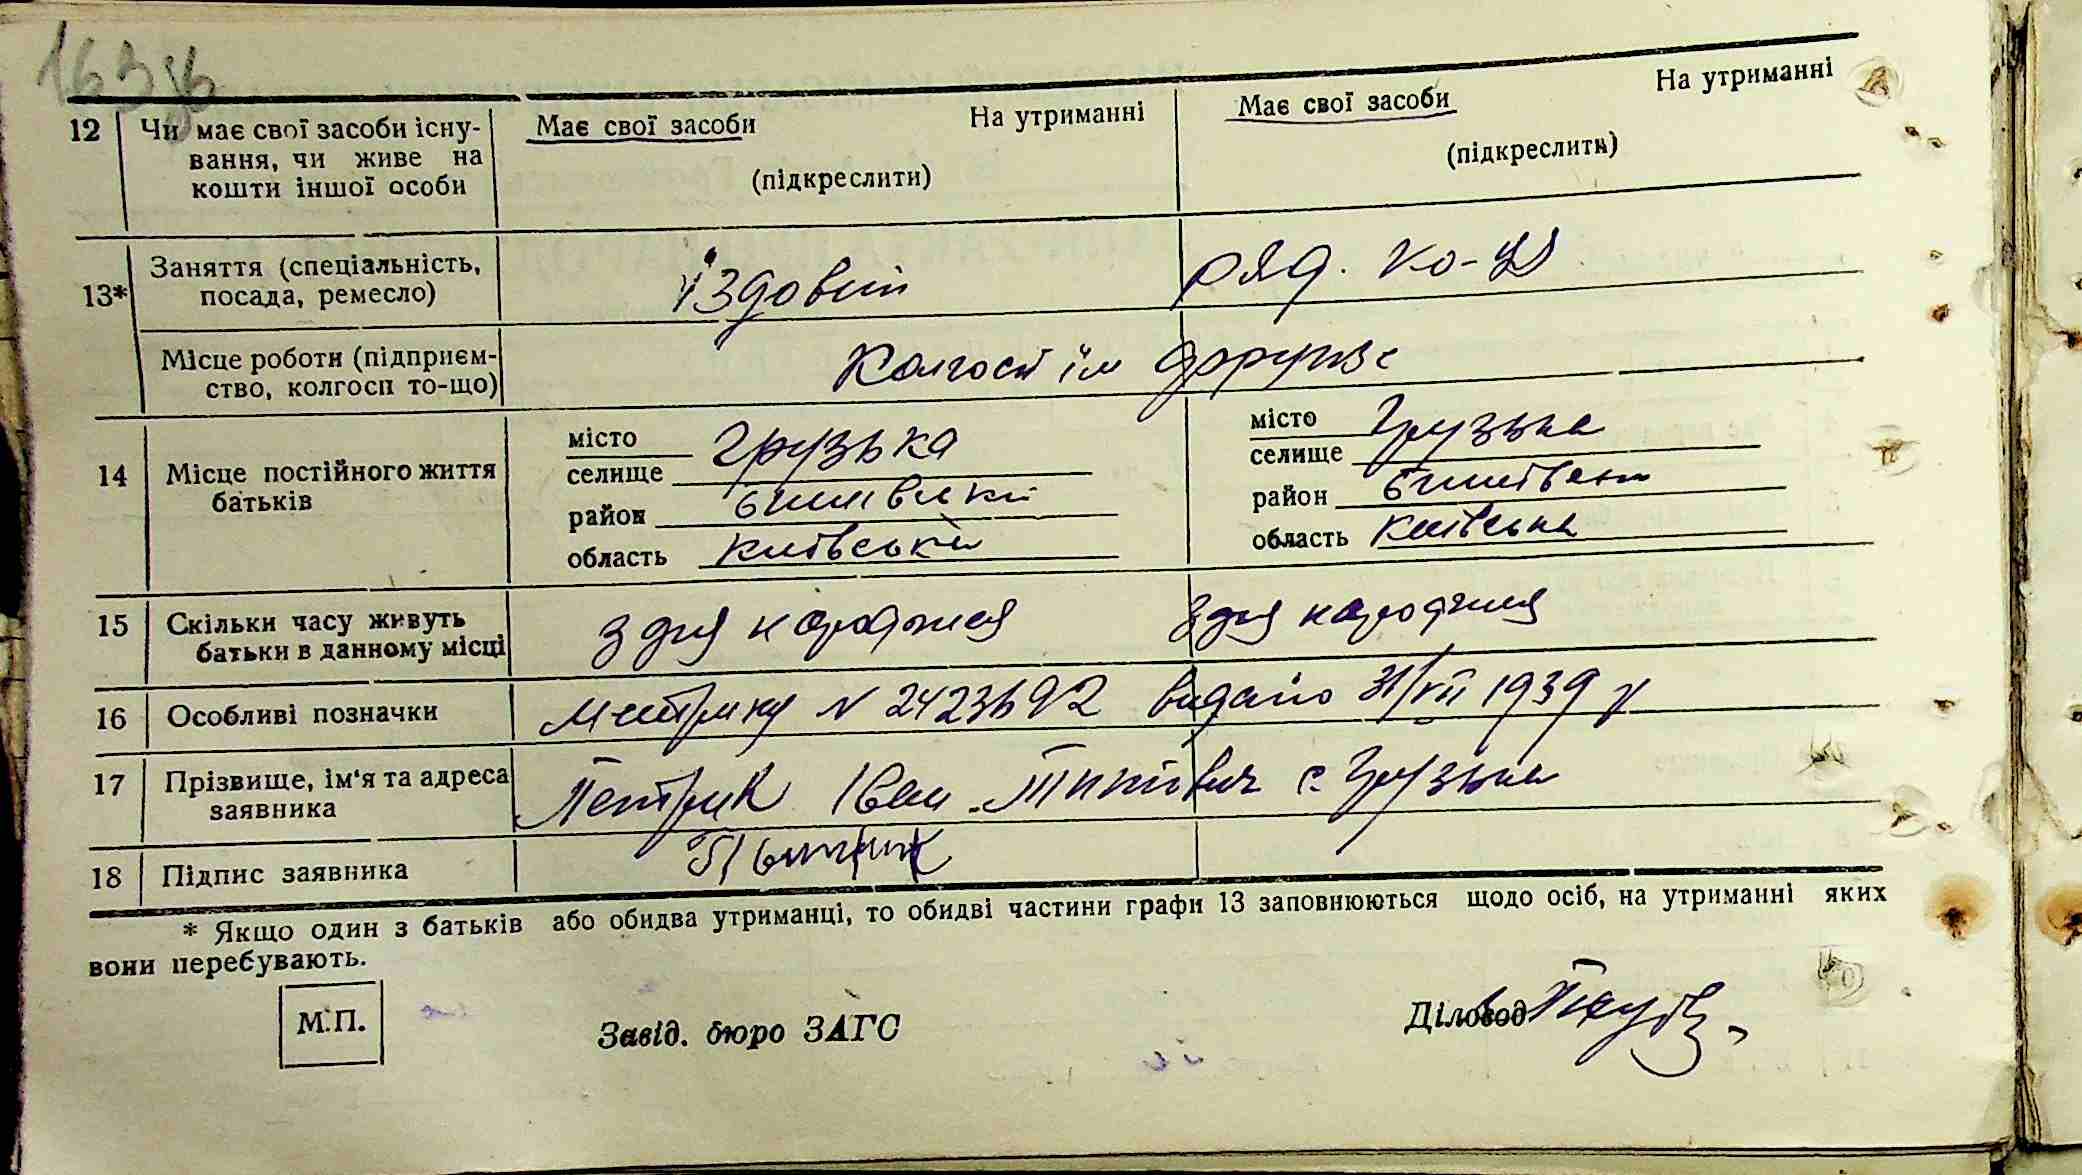 163 зв
12 Чи має свої засоби існу- Має свої засоби На утриманні Має свої засоби На утриманні
вання, чи живе на (підкреслити) (підкреслити)
кошти іншої особи
13* Заняття (спеціальність, їздовий ряд. ко-ця
посада, ремесло)
Місце роботи (підприєм- Колгосп ім
ство, колгосп то-що)
14 Місце постійного життя батьків
місто Грузька місто Грузька
селище селище
район район
область Київська область Київська
15 Скільки часу живуть з дня народження з дня народження
батьки в данному місці
16 Особливі позначки Метрику N 2423692 видано 31/VII 1939 р
17 Прізвище, ім'я та адреса Петрик Іван Титович с. Грузька
заявника
18 Підпис заявника Петрик
* Якщо один з батьків або обидва утриманці, то обидві частини графи 13 заповнюються щодо осіб, на утриманні яких
вони перебувають.
М.П. Завід. бюро ЗАГС Діловод